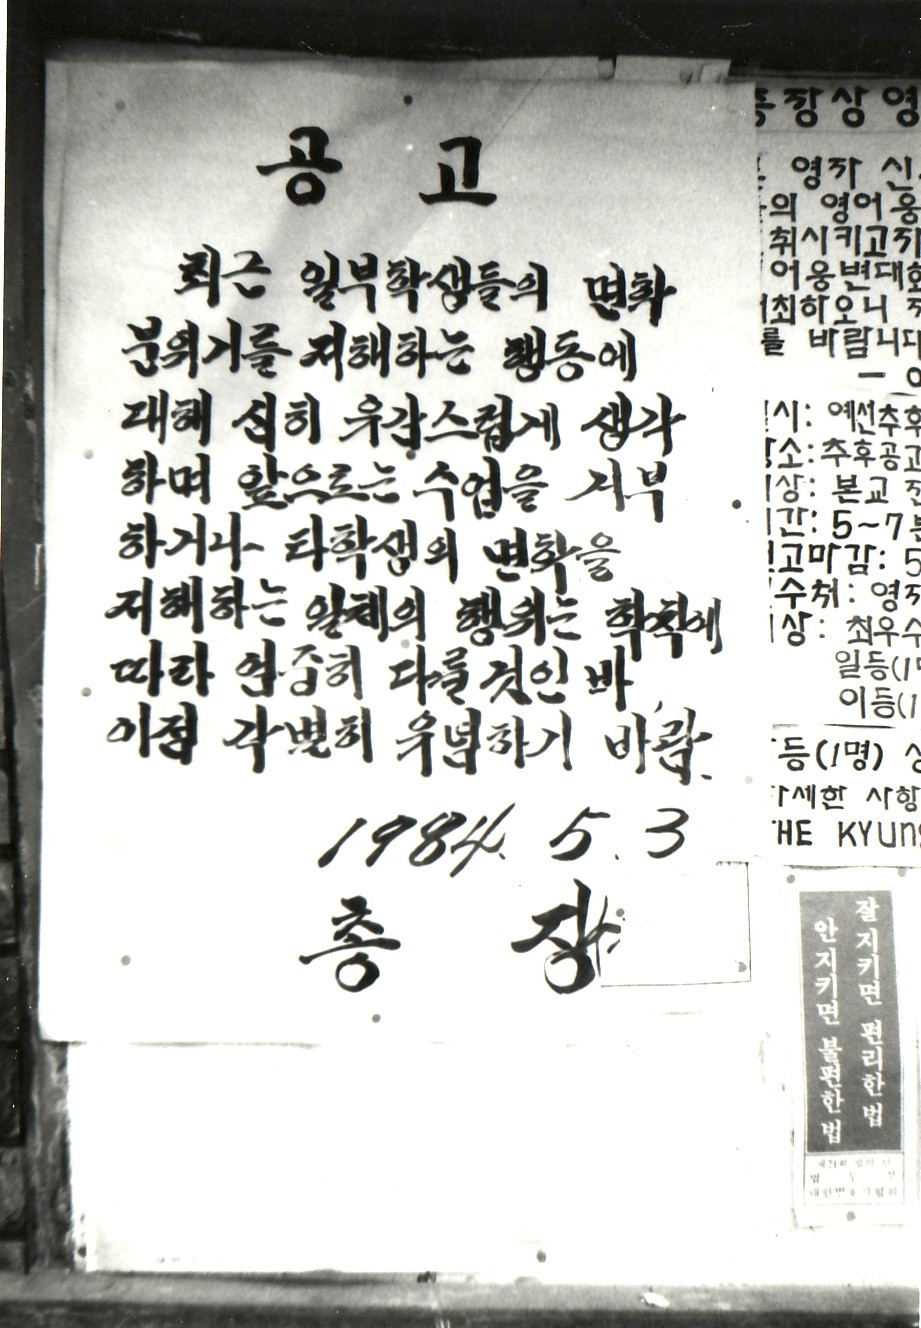 공 고
최근 일부학생들의 면학
분위기를 저해하는 행동에
대해 심히 유감스럽게 생각
하며 앞으로는 수업을 거부
하거나 타학생의 면학을
저해하는 일체의 행위는 학칙에
따라 엄중히 다룰것인 바,
이점 각별히 유념하기 바람.
1984. 5. 3
총 장
장상영
영자 신
의 영어웅
취시키고자
어웅변대회
최하오니
를 바람니다
시: 예선추후
소: 추후공고
상: 본교 전
간: 5~7분
고마감: 5
수처: 영자
상: 최우수
일등(1명
이등(1
등(1명) 상
세한 사항
THE KYUNG
잘 지키면 편리한 법
안 지키면 불편한 법